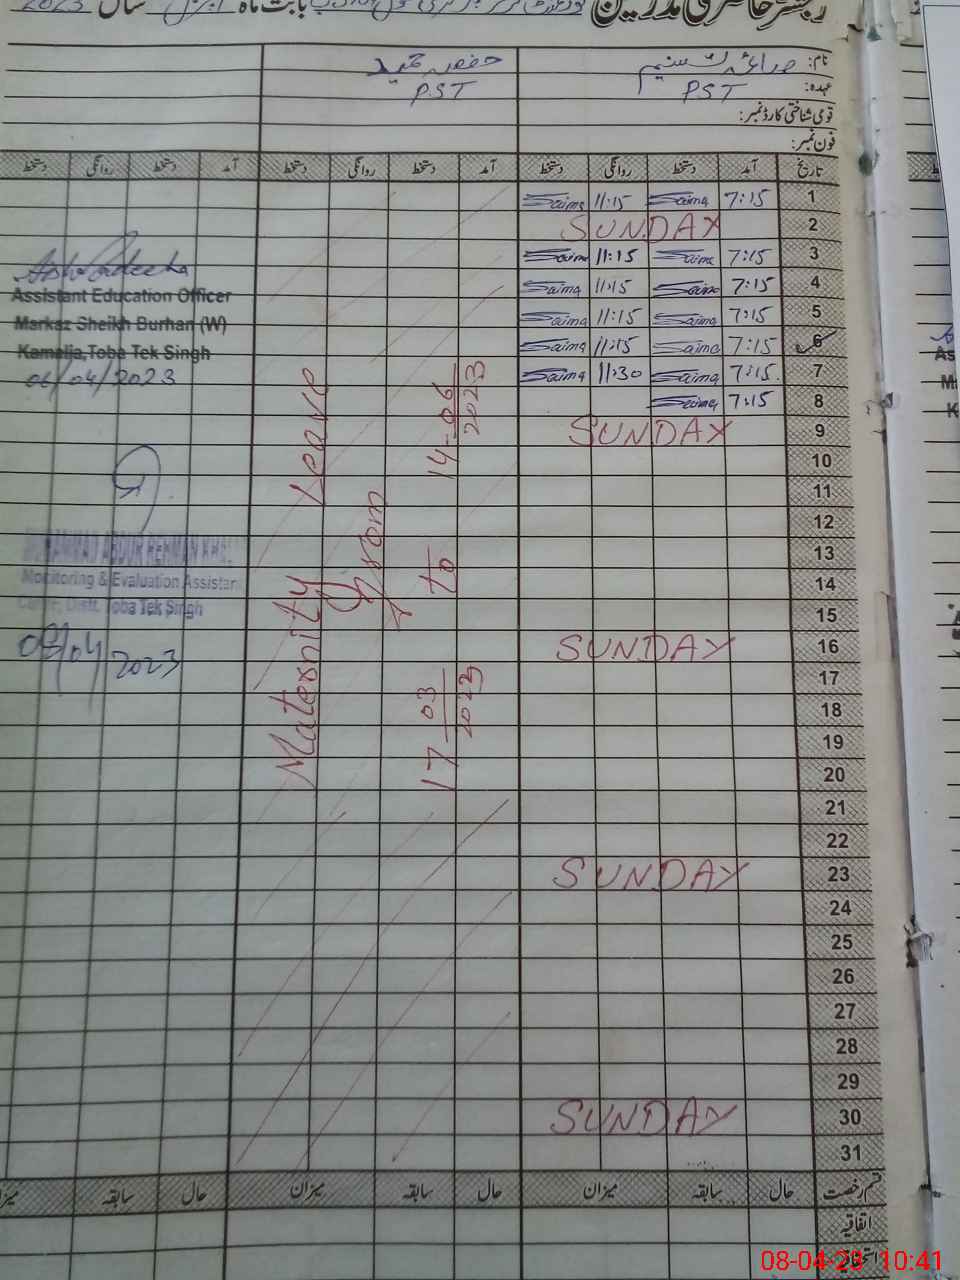 رجسٹر حاضری مدرسین بابت ماہ اپریل سال 2023
نام: صائمہ تسنیم حفصہ حمید
عہدہ: PST PST
قومی شناختی کارڈ نمبر:
فون نمبر:
تاریخ آمد دستخط روانگی دستخط آمد دستخط روانگی دستخط آمد دستخط روانگی دستخط
1 7:15 Saima 11:15 Saima
2 SUNDAY
3 7:15 Saima 11:15 Saima
4 7:15 Saima 11:15 Saima
5 7:15 Saima 11:15 Saima
6 7:15 Saima 11:15 Saima
7 7:15 Saima 11:30 Saima
8 7:15 Saima
9 SUNDAY
10
11
12
13
14
15
16 SUNDAY
17
18
19
20
21
22
23 SUNDAY
24
25
26
27
28
29
30 SUNDAY
31
Maternity Leave
From
17-03-2023 to 14-06-2023
Assistant Education Officer
Markaz Sheikh Burhan (W)
Kamalia, Toba Tek Singh
06/04/2023
MUHAMMAD ABDUR REHMAN
Monitoring & Evaluation Assistant
Distt. Toba Tek Singh
08/04/2023
قسم رخصت حال سابقہ میزان حال سابقہ میزان حال سابقہ میزان
اتفاقیہ
08-04-23 10:41